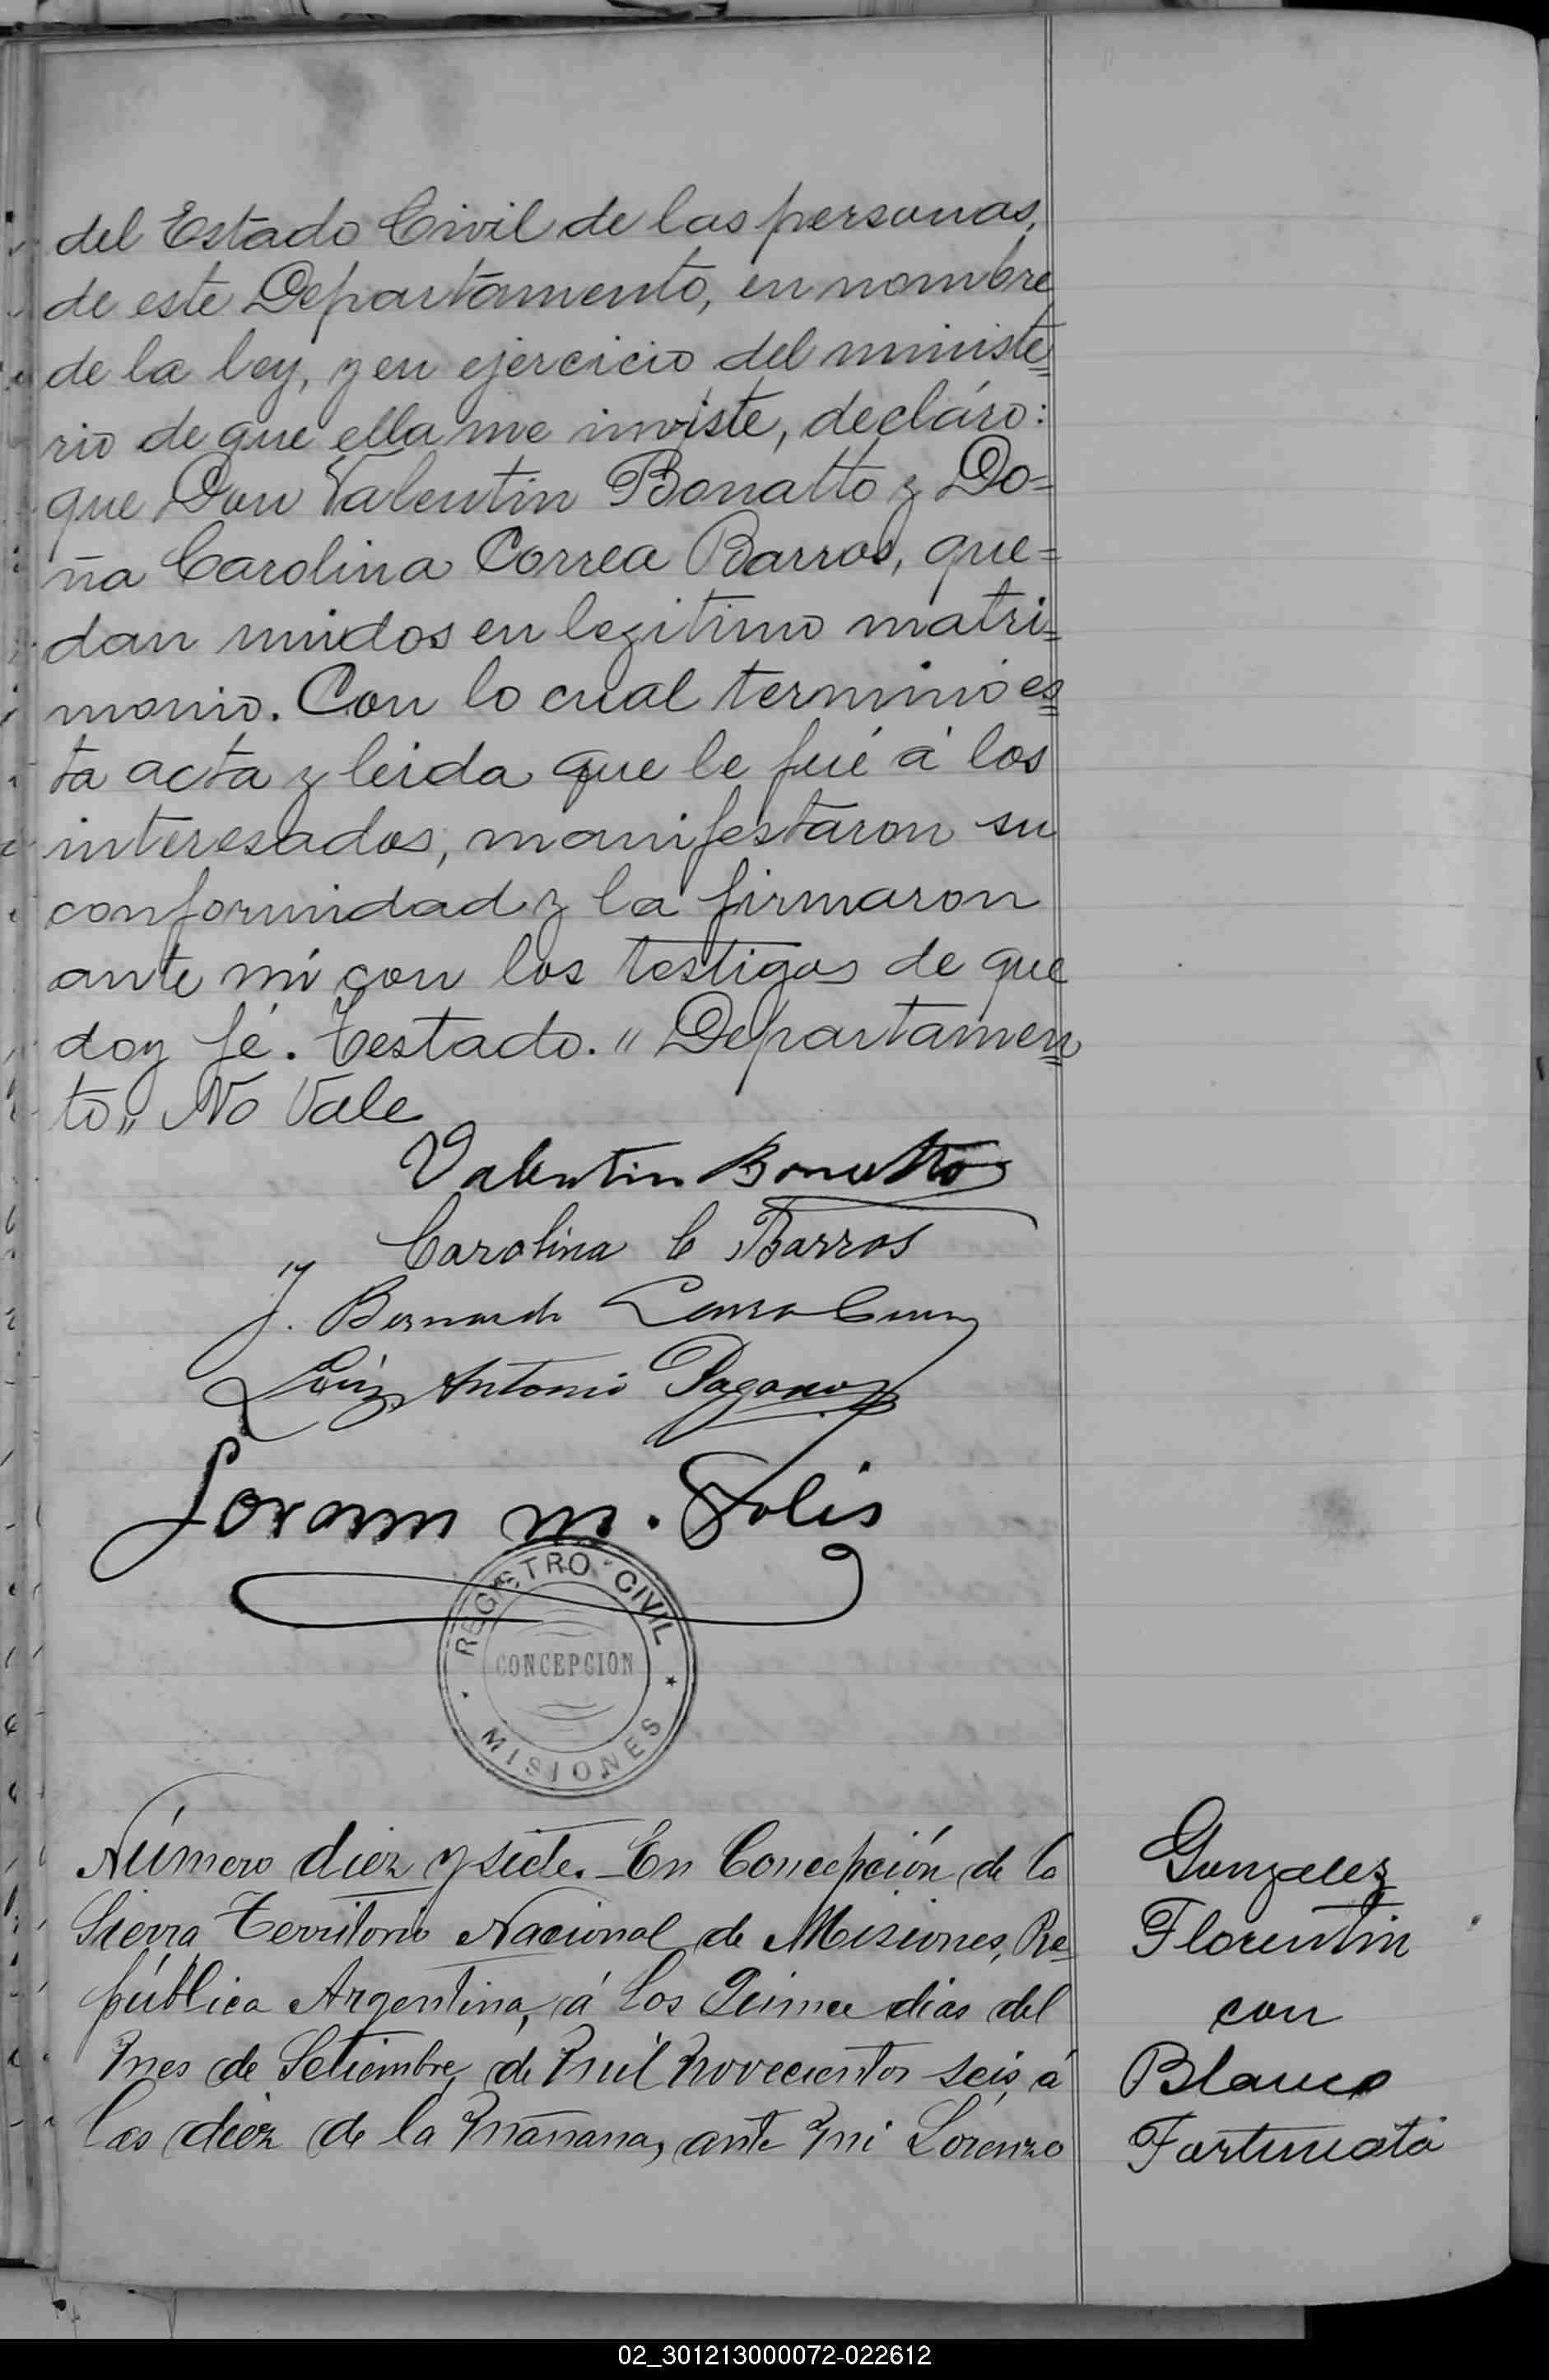 del Estado Civil de las personas,
de este Departamento, en nombre
de la ley, y en ejercicio del ministe=
rio de que ella me inviste, decláro:
que Don Valentin Bonatto y Do=
ña Carolina Correa Barros, que=
dan unidos en legitimo matri=
monio. Con lo cual terminó es=
ta acta y leida que le fué á los
interesados, manifestaron su
conformidad y la firmaron
ante mi con los testigos de que
doy fé. Testado. "Departamen=
to" No Vale
Valentin Bonatto
Carolina C Barros
J. Bernardo
Luiz Antonio Pagano
M. Solis
REGISTRO CIVIL
CONCEPCION
MISIONES
Número diez y siete. En Concepción de la
Sierra Territorio Nacional de Misiones, Re=
pública Argentina, á los Quince dias del
Mes de Setiembre de Mil Novecientos seis á
las diez de la Mañana, ante Mi Lorenzo
Gonzalez
Florentin
con
Blanco
Fortunata
02_301213000072-022612